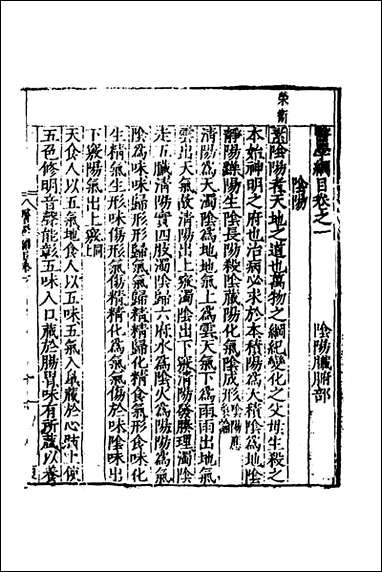 醫學綱目卷之一　陰陽臟腑部
陰陽
榮衛
素陰陽者天地之道也萬物之綱紀變化之父母生殺之
本始神明之府也治病必求於本積陽為天積陰為地陰
靜陽躁陽生陰長陽殺陰藏陽化氣陰成形陰陽應象論
清陽為天濁陰為地地氣上為雲天氣下為雨雨出地氣
雲出天氣故清陽出上竅濁陰出下竅清陽發腠理濁陰
走五臟清陽實四肢濁陰歸六府水為陰火為陽陽為氣
陰為味味歸形形歸氣氣歸精精歸化精食氣形食味化
生精氣生形味傷形氣傷精精化為氣氣傷於味陰味出
下竅陽氣出上竅同
天食人以五氣地食人以五味五氣入鼻藏於心肺上使
五色修明音聲能彰五味入口藏於腸胃味有所藏以養